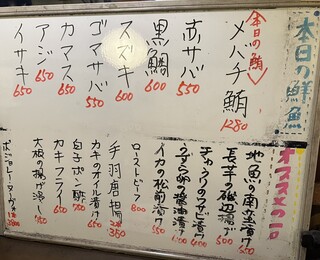 本日の鮮魚
本日の鮪
メバチ鮪 1280
赤サバ 550
黒鯛 600
スズキ 600
ゴマサバ 550
カマス 650
アジ 650
イサキ 650
オススメの一品
地魚の南蛮漬け 550
長芋の磯辺揚げ 500
きゅうりのワサビ漬け 400
うずら卵の醤油漬け 400
イカの松前漬け 550
ローストビーフ 800
手羽唐揚 2本 380
カキのオイル漬け 650
カキフライ 650
白子ポン酢 750
大根の揚げ出し 750